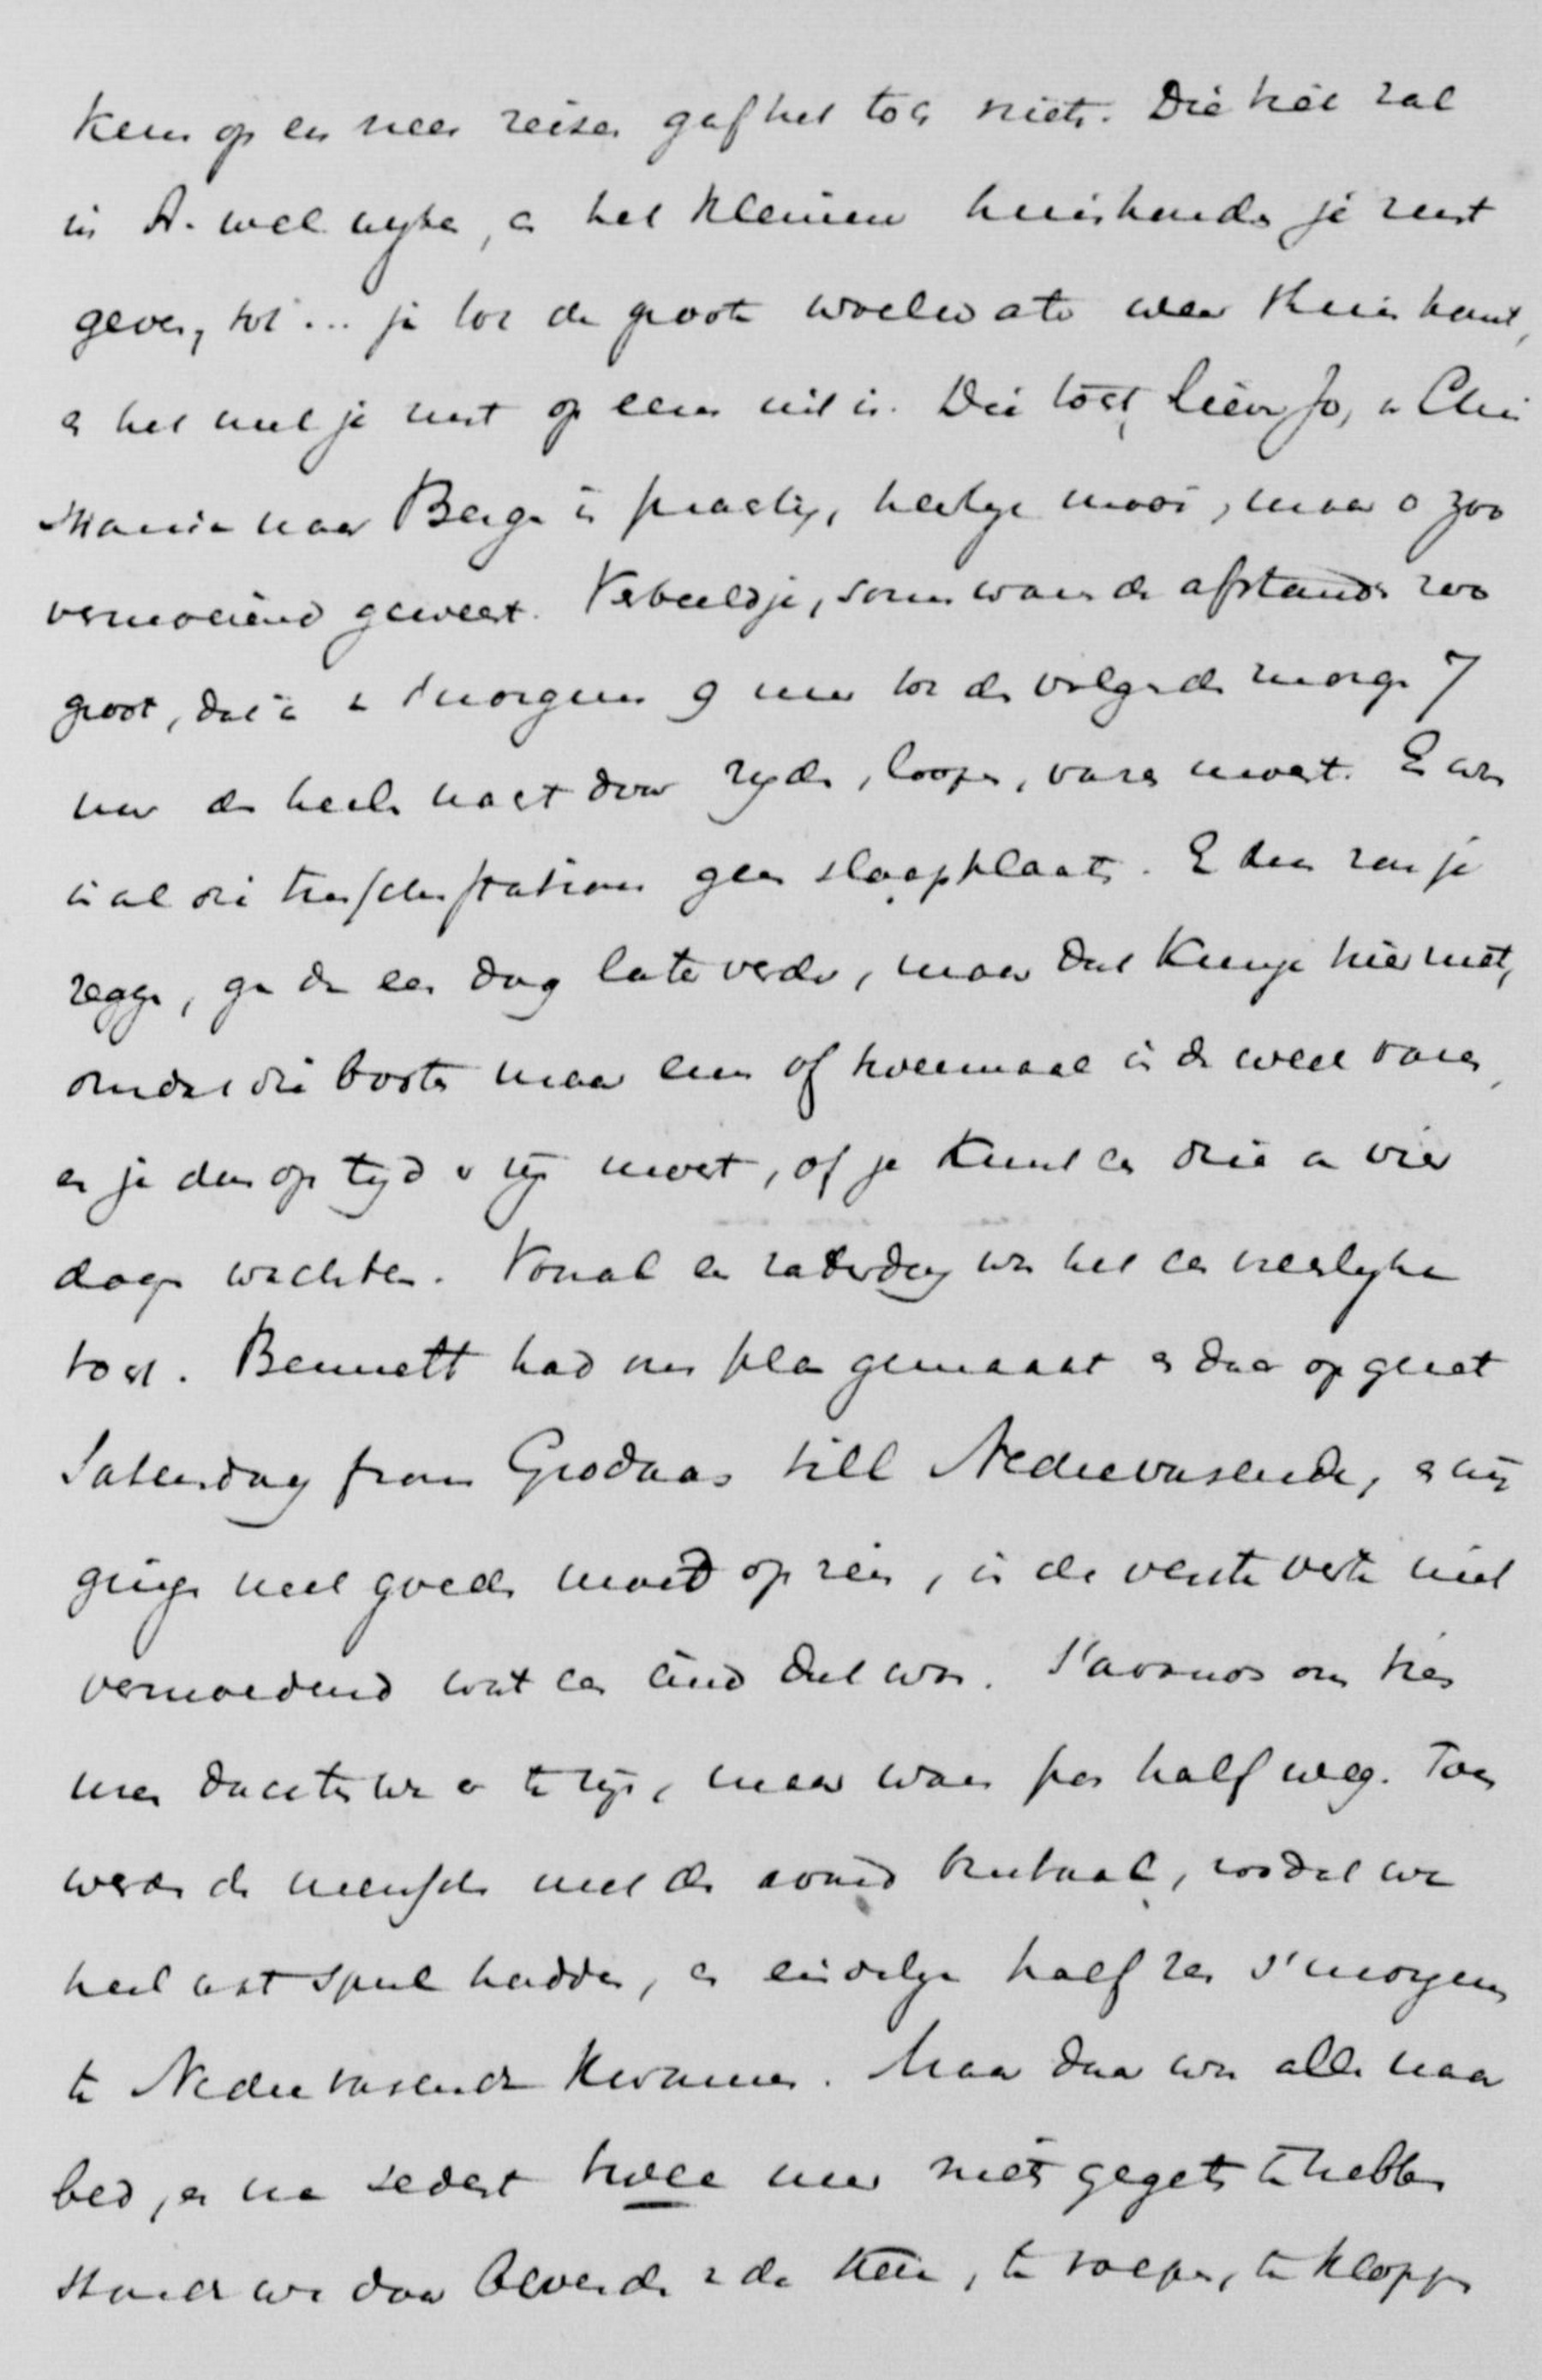 keer op en neer reizen gaf het toch niets. Die hiel zal
in A. wel wyken, en het kleinen huishouden je rust
geven, tot ... ja tot de groote woelwater weer thuis komt,
en het met je rust op eens uit is. Die tocht, lieve Jo, v. Chris
tiania naar Bergen is prachtig, heerlyk mooi, maar o zoo
vermoeiend geweest. Verbeeld je, soms waren de afstanden zoo
groot, dat je v. 's morgens 9 uur tot de volgende morgen 7
uur de heele nacht door ryden, loopen, varen moest. En er was
in al die tusschenstations geen slaapplaats. En dan zou je
zeggen, ga dan een dag later verder, maar dat kun je hier niet,
omdat die booten maar een of tweemaal in de week varen,
en je dan op tyd er zijn moet, of je kunt er drie a vier
dagen wachten. Vooral en zaterdag was het een vreeslyke
tocht. Bennett had ons plan gemaakt en daar op gezet
Saturday from Grodaas till Nedrevasenden, en wij
gingen met goeden moed op reis, in de verste verte niet
vermoedend wat een eind dat was. 's Avonds om tien
uur dachten we er te zijn, maar waren pas half weg. Toen
werden de menschen met de avond brutaal, zoodat we
heel wat spul hadden, en eindelyk half zes 's morgens
te Nedrevasenden kwamen. Maar daar was alles naar
bed, en na sedert twee uur niets gegeten te hebben
stonden we daar bevende v. de kou, te roepen, te kloppen